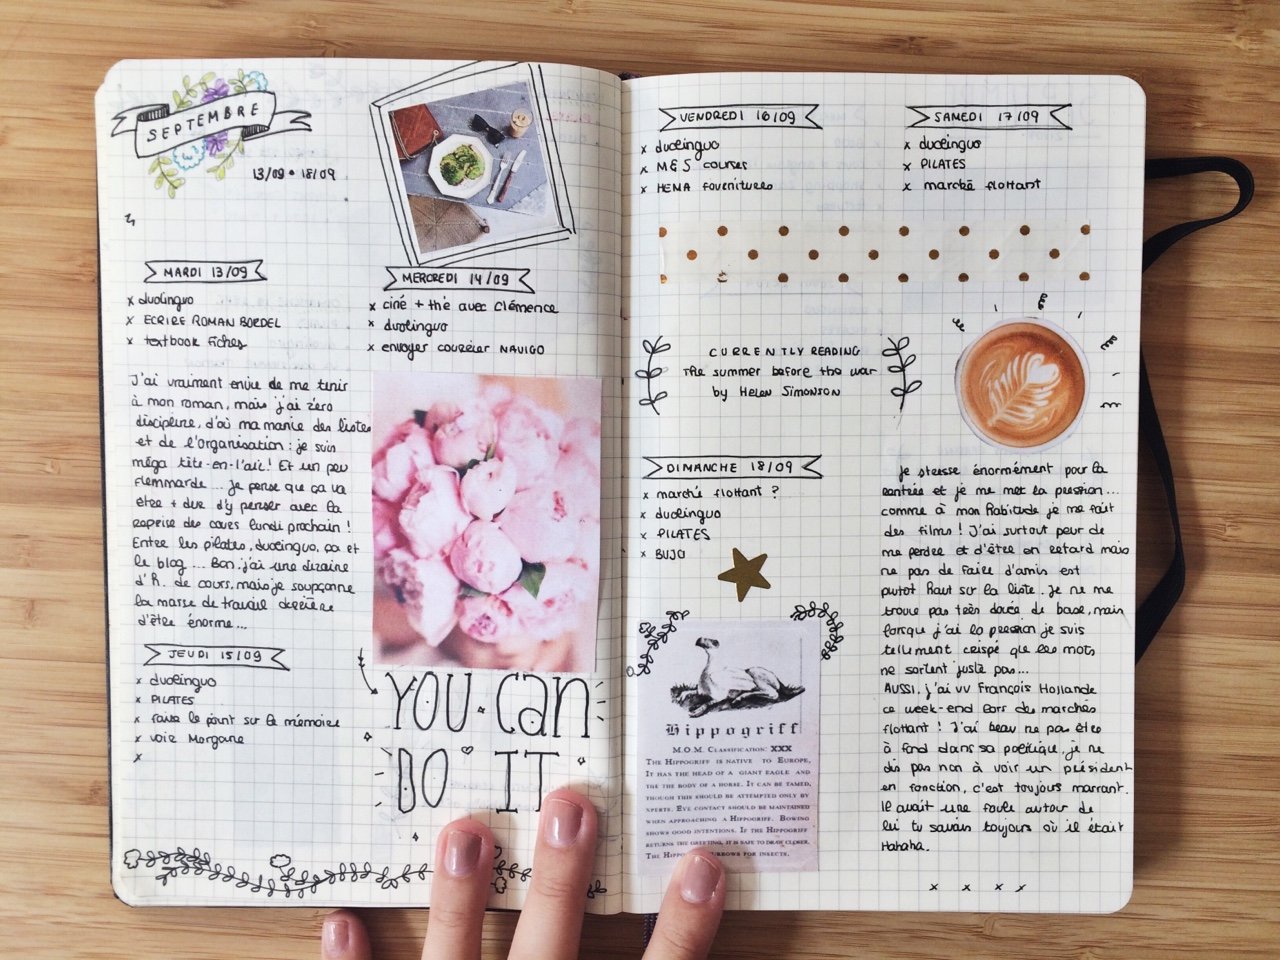 SEPTEMBRE
13/09 • 18/09
MARDI 13/09
x duolinguo
x ECRIRE ROMAN BORDEL
x textbook fiches
J'ai vraiment envie de me tenir
à mon roman, mais j'ai zéro
discipline, d'où ma manie des listes
et de l'organisation : je suis
méga tête-en-l'air ! Et un peu
flemmarde... Je pense que ça va
être + dur d'y penser avec la
reprise des cours lundi prochain !
Entre les pilates, duolinguo, ça et
le blog... Bon, j'ai une dizaine
d'h. de cours, mais je soupçonne
la masse de travail derrière
d'être énorme...
JEUDI 15/09
x duolinguo
x PILATES
x faire le point sur le mémoire
x voir Morgane
x
MERCREDI 14/09
x ciné + thé avec Clémence
x duolinguo
x envoyer courrier NAVIGO
YOU can
DO IT
VENDREDI 16/09
x duolinguo
x M&S courses
x HEMA fournitures
SAMEDI 17/09
x duolinguo
x PILATES
x marché flottant
CURRENTLY READING
The summer before the war
by Helen SIMONSON
DIMANCHE 18/09
x marché flottant ?
x duolinguo
x PILATES
x BUJO
Hippogriff
M.O.M. CLASSIFICATION: XXX
THE HIPPOGRIFF IS NATIVE TO EUROPE,
IT HAS THE HEAD OF A GIANT EAGLE AND
THE THE BODY OF A HORSE. IT CAN BE TAMED,
THOUGH THIS SHOULD BE ATTEMPTED ONLY BY
XPERTS. EYE CONTACT SHOULD BE MAINTAINED
WHEN APPROACHING A HIPPOGRIFF. BOWING
SHOWS GOOD INTENTIONS. IF THE HIPPOGRIFF
RETURNS THE GREETING, IT IS SAFE TO DRAW CLOSER.
THE HIPPO URROWS FOR INSECTS.
Je stresse énormément pour la
rentrée et je me met la pression...
comme à mon habitude je me fait
des films ! J'ai surtout peur de
me perdre et d'être en retard mais
ne pas de faire d'amis est
putot haut sur la liste. Je ne me
trouve pas très douée de base, main
lorsque j'ai la pression je suis
tellement crispé que les mots
ne sortent juste pas...
AUSSI, j'ai vu François Hollande
ce week-end lors des marchés
flottant ! J'ai beau ne pas être
à fond dans sa politique, je ne
dis pas non à voir un président
en fonction, c'est toujours marrant.
Il avait une foule autour de
lui tu savais toujours où il était
Hahaha.
x x x x